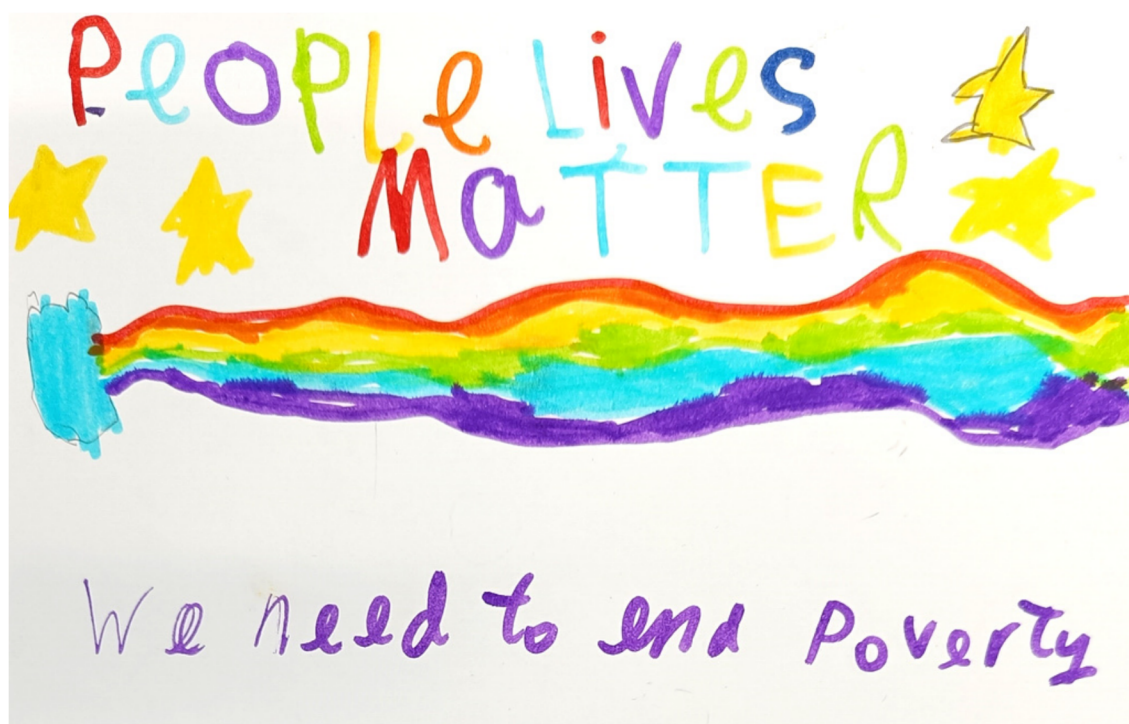 PeOPLe Lives
MaTTER
We need to end Poverty